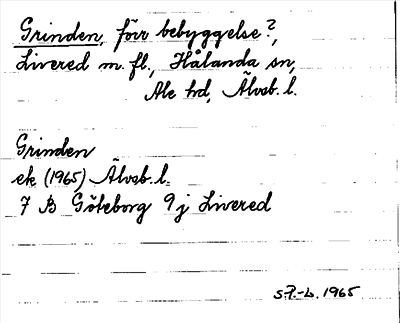 Grinden, förr bebyggelse?,
Livered m. fl., Hålanda sn,
Ale hd, Älvsb. l.
Grinden
ek (1965) Älvsb. l.
7 B Göteborg 9 j Livered
S.P.-L. 1965